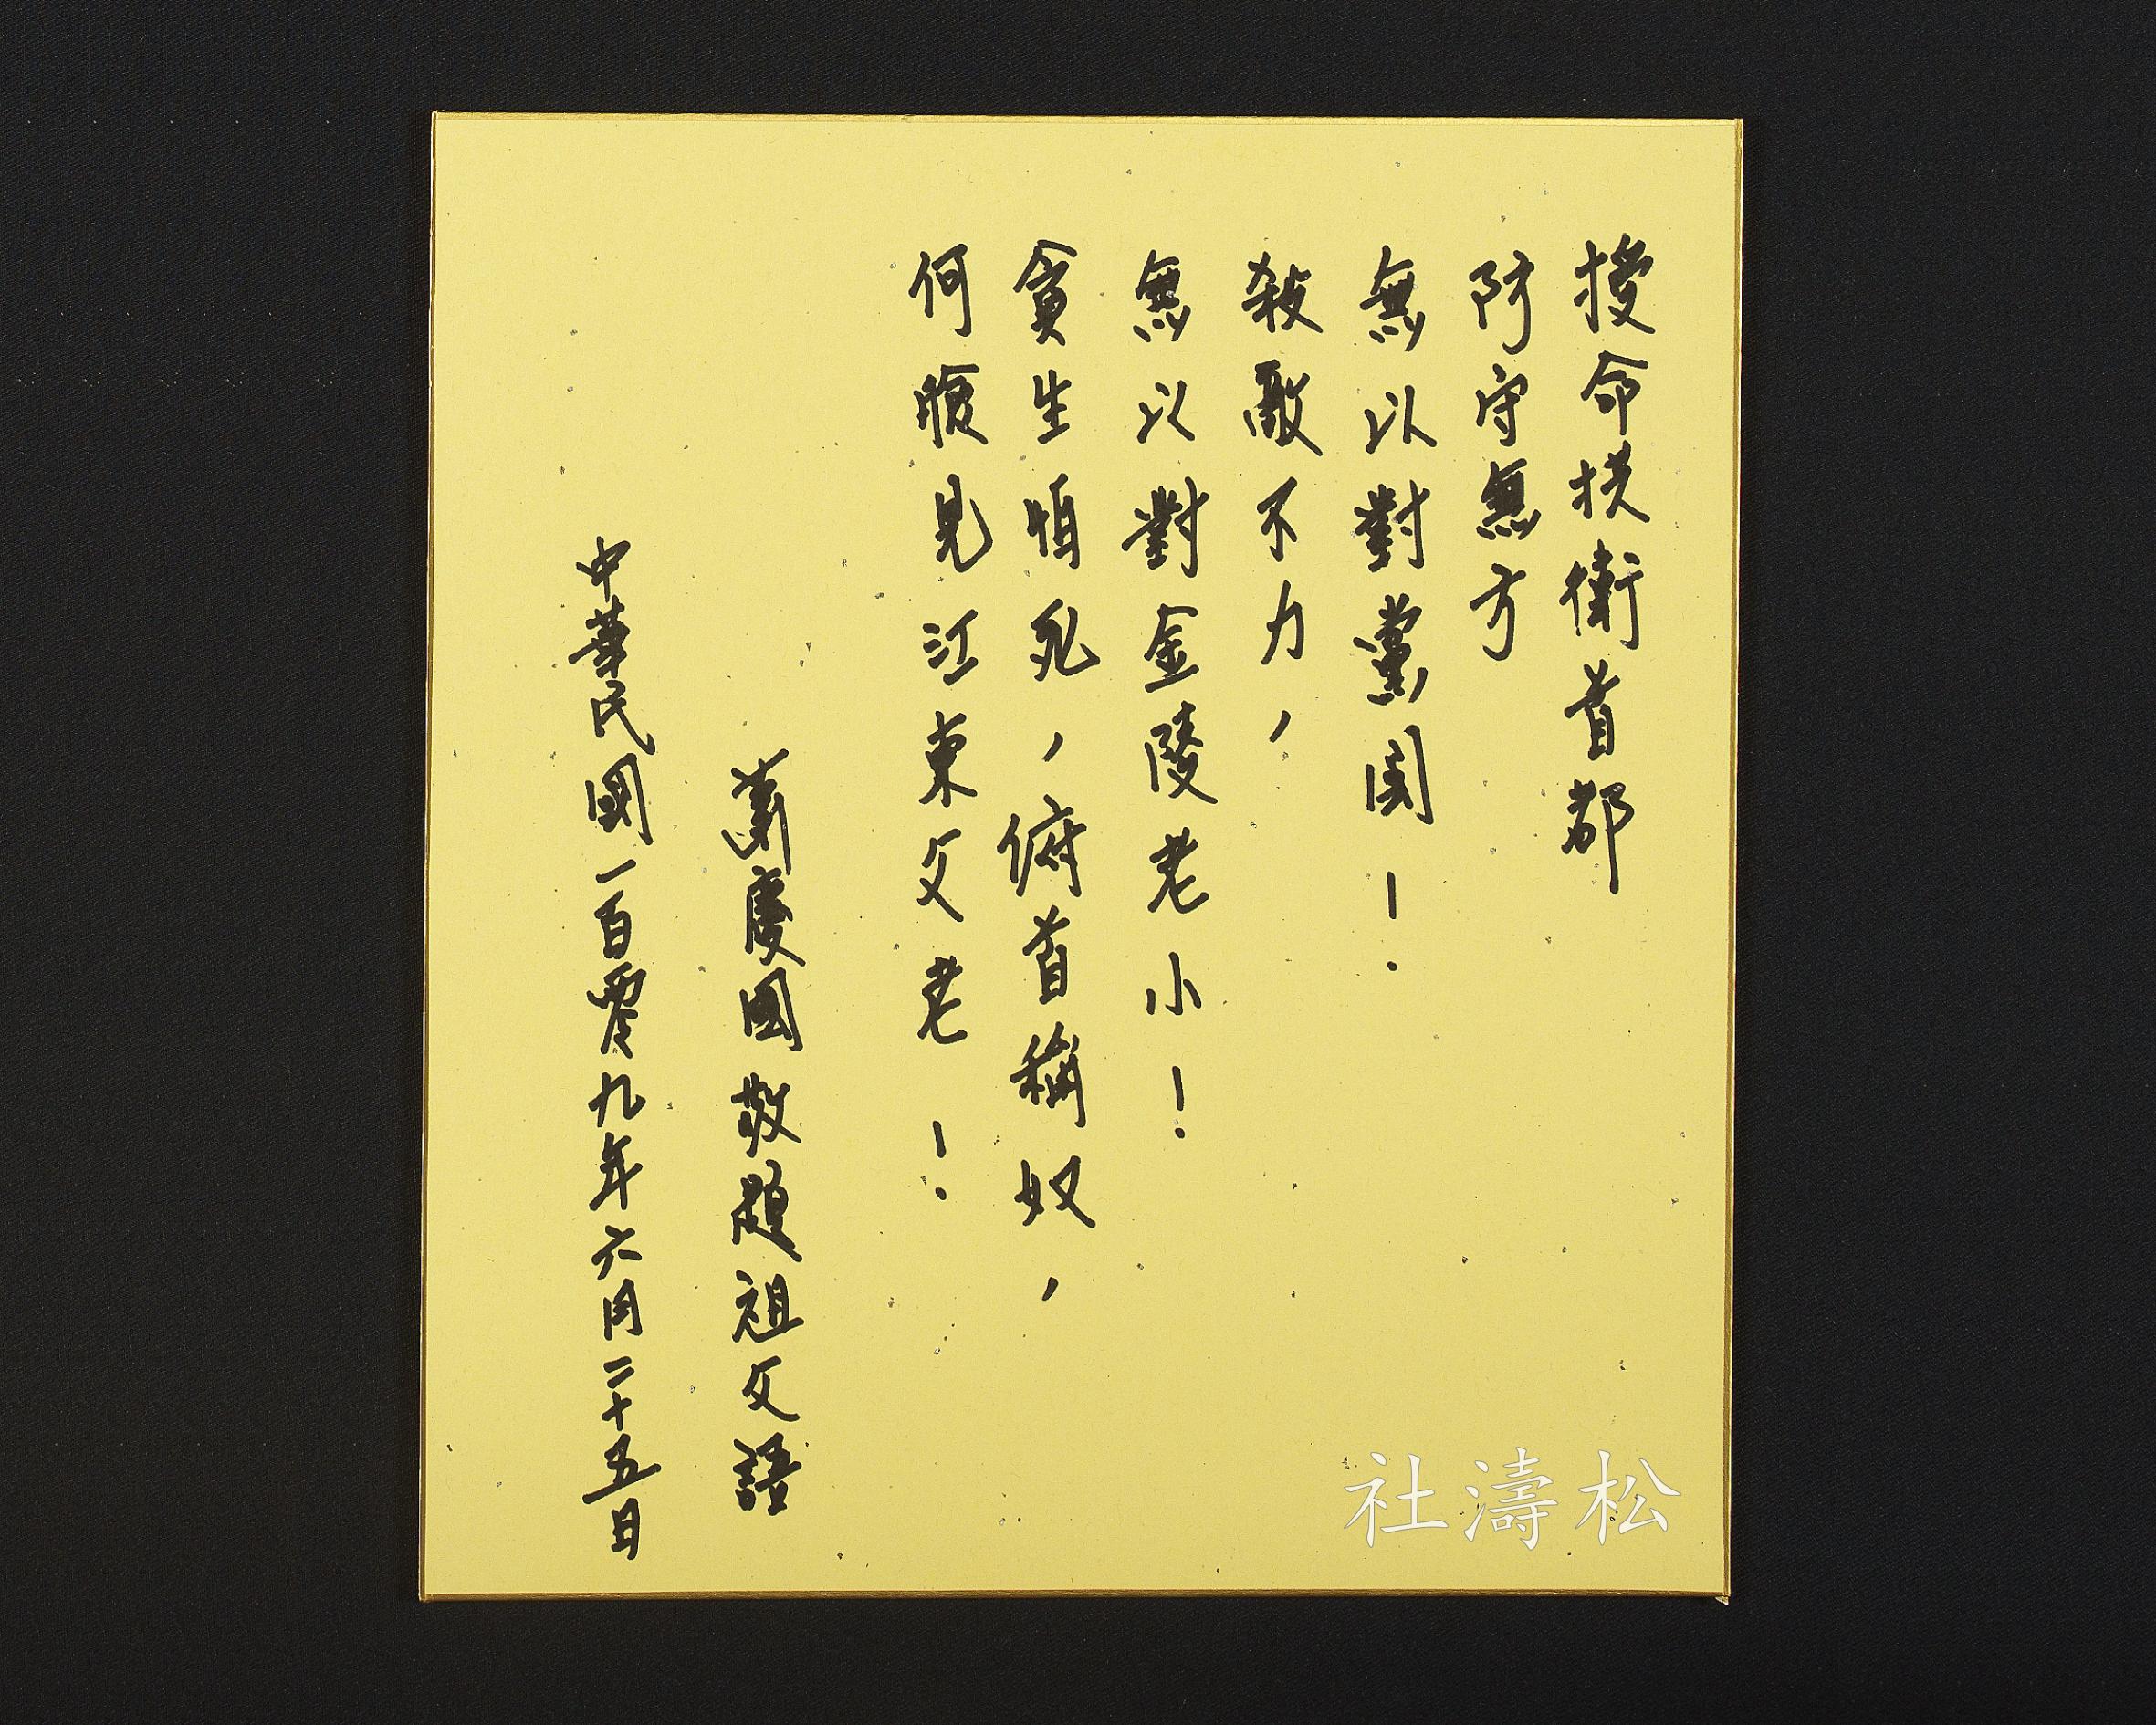 授命拱衛首都
防守無方
無以對黨国！
殺敵不力，
無以對金陵老小！
貪生怕死，俯首稱奴，
何顏見江東父老！
蕭慶國敬題祖父語
中華民國一百零九年六月二十五日
松濤社